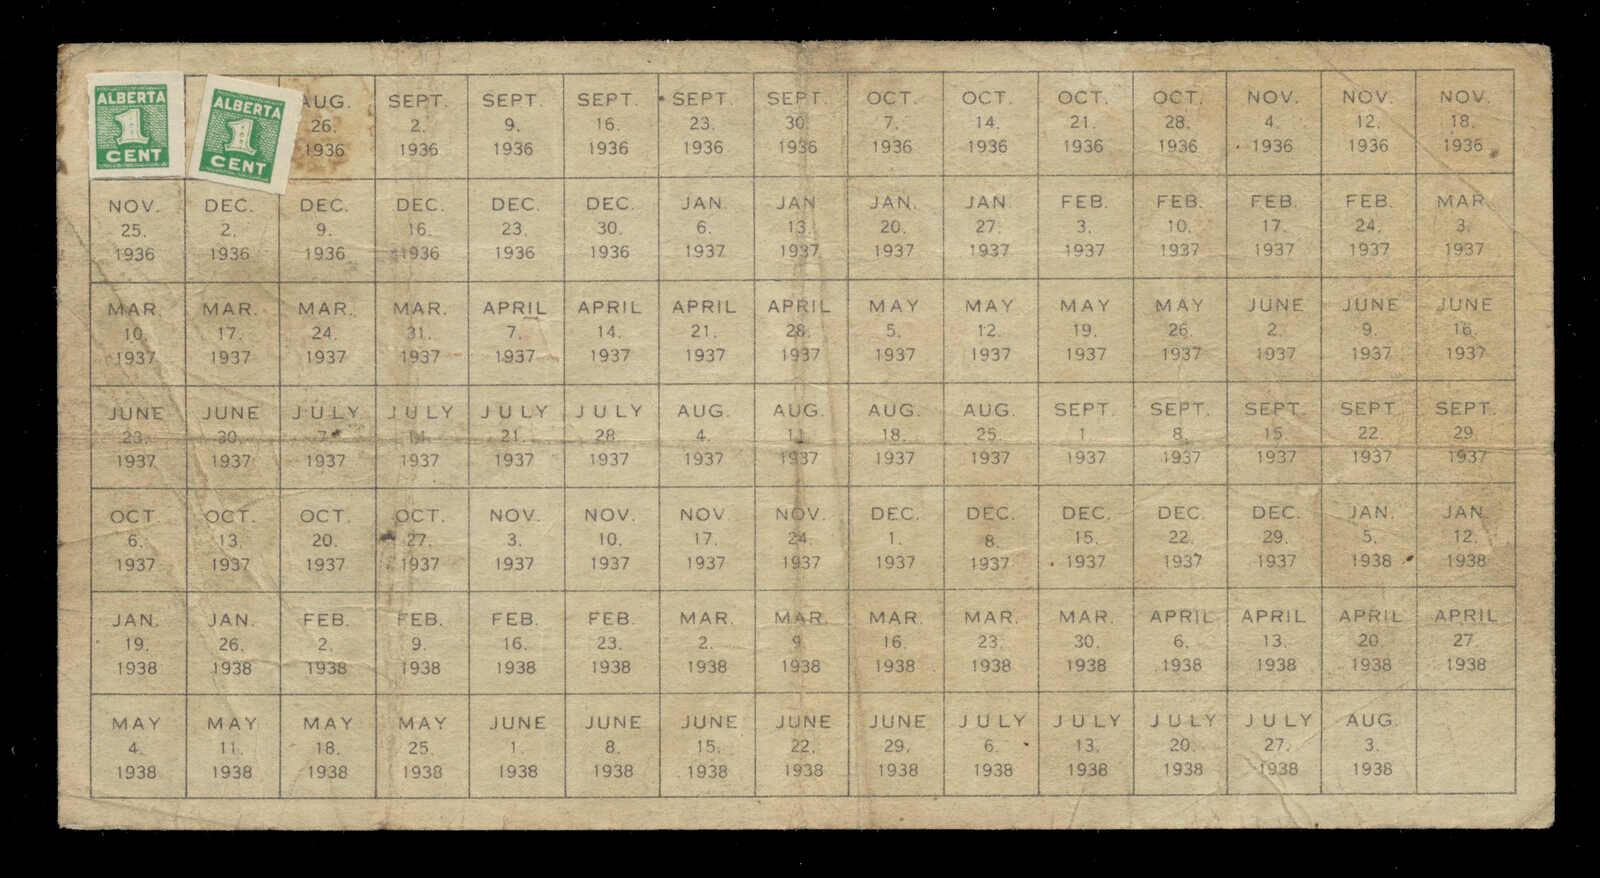 ALBERTA
1
CENT
ALBERTA
1
CENT
AUG. SEPT. SEPT. SEPT. SEPT. SEPT. OCT. OCT. OCT. OCT. NOV. NOV. NOV.
26. 2. 9. 16. 23. 30. 7. 14. 21. 28. 4. 12. 18.
1936 1936 1936 1936 1936 1936 1936 1936 1936 1936 1936 1936 1936
NOV. DEC. DEC. DEC. DEC. DEC. JAN. JAN. JAN. JAN. FEB. FEB. FEB. FEB. MAR.
25. 2. 9. 16. 23. 30. 6. 13. 20. 27. 3. 10. 17. 24. 3.
1936 1936 1936 1936 1936 1936 1937 1937 1937 1937 1937 1937 1937 1937 1937
MAR. MAR. MAR. MAR. APRIL APRIL APRIL APRIL MAY MAY MAY MAY JUNE JUNE JUNE
10. 17. 24. 31. 7. 14. 21. 28. 5. 12. 19. 26. 2. 9. 16.
1937 1937 1937 1937 1937 1937 1937 1937 1937 1937 1937 1937 1937 1937 1937
JUNE JUNE JULY JULY JULY JULY AUG. AUG. AUG. AUG. SEPT. SEPT. SEPT. SEPT. SEPT.
23. 30. 7. 14. 21. 28. 4. 11. 18. 25. 1. 8. 15. 22. 29.
1937 1937 1937 1937 1937 1937 1937 1937 1937 1937 1937 1937 1937 1937 1937
OCT. OCT. OCT. OCT. NOV. NOV. NOV. NOV. DEC. DEC. DEC. DEC. DEC. JAN. JAN.
6. 13. 20. 27. 3. 10. 17. 24. 1. 8. 15. 22. 29. 5. 12.
1937 1937 1937 1937 1937 1937 1937 1937 1937 1937 1937 1937 1937 1938 1938
JAN. JAN. FEB. FEB. FEB. FEB. MAR. MAR. MAR. MAR. MAR. APRIL APRIL APRIL APRIL
19. 26. 2. 9. 16. 23. 2. 9. 16. 23. 30. 6. 13. 20. 27.
1938 1938 1938 1938 1938 1938 1938 1938 1938 1938 1938 1938 1938 1938 1938
MAY MAY MAY MAY JUNE JUNE JUNE JUNE JUNE JULY JULY JULY JULY AUG.
4. 11. 18. 25. 1. 8. 15. 22. 29. 6. 13. 20. 27. 3.
1938 1938 1938 1938 1938 1938 1938 1938 1938 1938 1938 1938 1938 1938